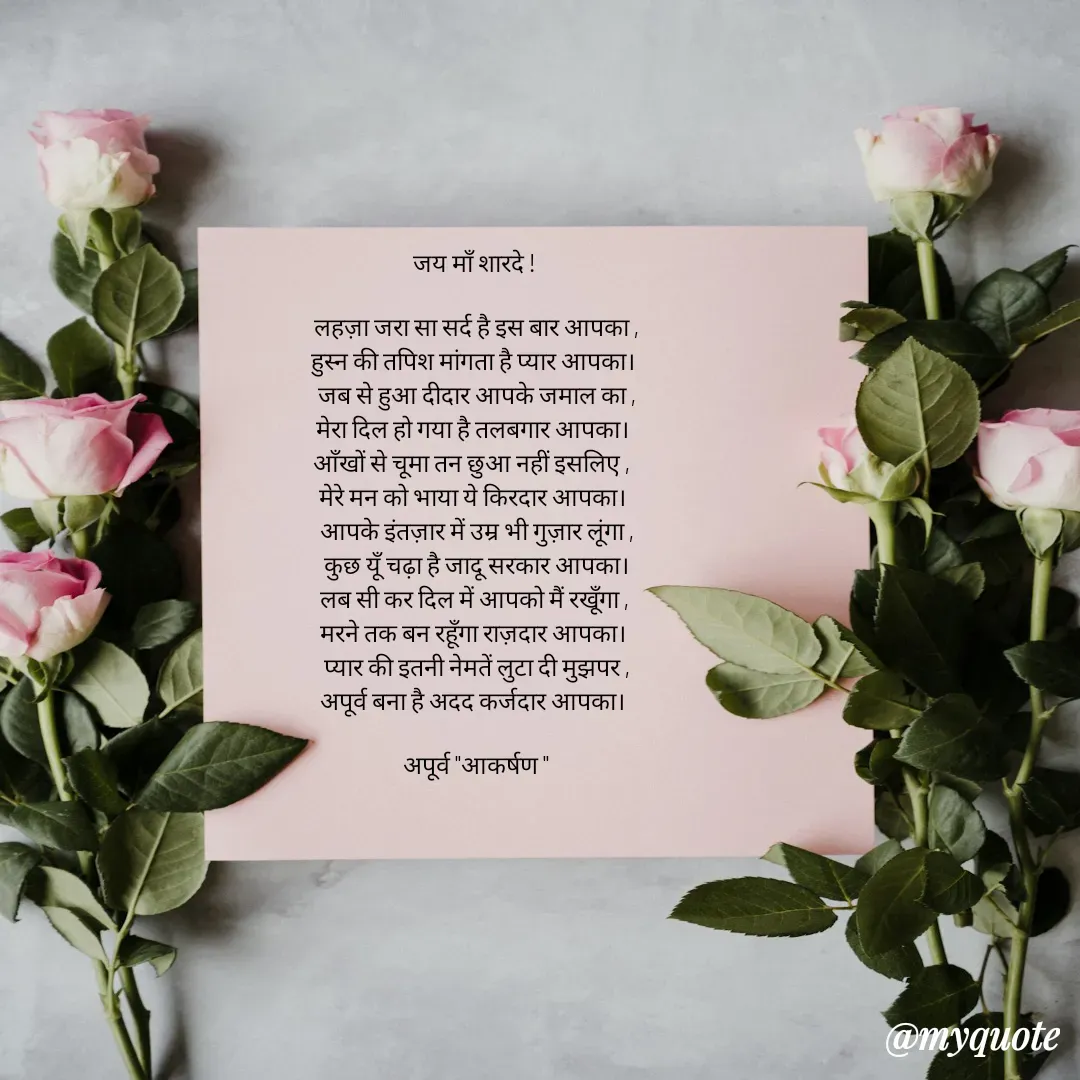 जय माँ शारदे !
लहज़ा जरा सा सर्द है इस बार आपका ,
हुस्न की तपिश मांगता है प्यार आपका।
जब से हुआ दीदार आपके जमाल का ,
मेरा दिल हो गया है तलबगार आपका।
आँखों से चूमा तन छुआ नहीं इसलिए ,
मेरे मन को भाया ये किरदार आपका।
आपके इंतज़ार में उम्र भी गुज़ार लूंगा ,
कुछ यूँ चढ़ा है जादू सरकार आपका।
लब सी कर दिल में आपको मैं रखूँगा ,
मरने तक बन रहूँगा राज़दार आपका।
प्यार की इतनी नेमतें लुटा दी मुझपर ,
अपूर्व बना है अदद कर्जदार आपका।
अपूर्व "आकर्षण "
@myquote